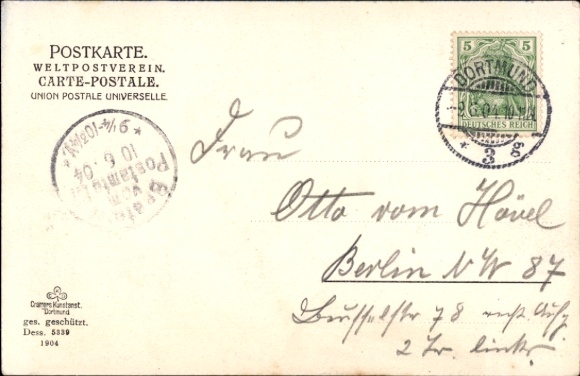 POSTKARTE.
WELTPOSTVEREIN.
CARTE-POSTALE.
UNION POSTALE UNIVERSELLE.
5 5
DEUTSCHES REICH
DORTMUND
3 g
* 9¼-10½N *
10.6.04
Postamte
Frau
Otto vom Hövel
Berlin NW 87
Beusselstr 78 recht. Aufg
2 Tr. links
Cramers Kunstanst.
Dortmund
ges. geschützt.
Dess. 5339
1904